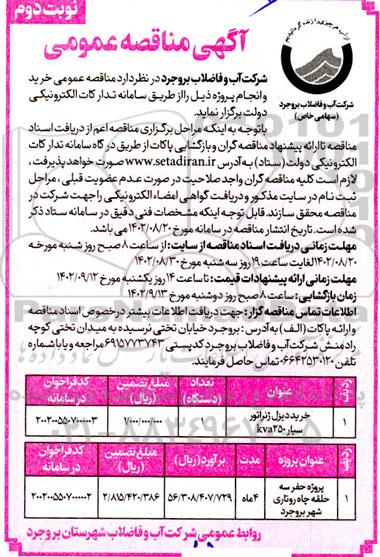 نوبت دوم
آگهی مناقصه عمومی
شرکت آب و فاضلاب بروجرد
(سهامی خاص)
شرکت آب و فاضلاب بروجرد در نظر دارد مناقصه عمومی خرید
و انجام پروژه ذیل را از طریق سامانه تدارکات الکترونیکی
دولت برگزار نماید.
با توجه به اینکه مراحل برگزاری مناقصه اعم از دریافت اسناد
مناقصه تا ارائه پیشنهاد مناقصه گران و بازگشایی پاکات از طریق درگاه سامانه تدارکات
الکترونیکی دولت (ستاد) به آدرس www.setadiran.ir صورت خواهد پذیرفت،
لازم است کلیه مناقصه گران واجد صلاحیت در صورت عدم عضویت قبلی، مراحل
ثبت نام در سایت مذکور و دریافت گواهی امضاء الکترونیکی را جهت شرکت در
مناقصه محقق سازند. قابل توجه اینکه مشخصات فنی دقیق در سامانه ستاد ذکر
شده است. تاریخ انتشار مناقصه در سامانه مورخ ۱۴۰۲/۰۸/۲۰ می باشد.
مهلت زمانی دریافت اسناد مناقصه از سایت: از ساعت ۸ صبح روز شنبه مورخه
۱۴۰۲/۰۸/۲۰ لغایت ساعت ۱۹ روز سه شنبه مورخ ۱۴۰۲/۰۸/۳۰
مهلت زمانی ارائه پیشنهادات قیمت: تا ساعت ۱۴ روز یکشنبه مورخ ۱۴۰۲/۰۹/۱۲
زمان بازگشایی: ساعت ۸ صبح روز دوشنبه مورخ ۱۴۰۲/۹/۱۳
اطلاعات تماس مناقصه گزار: جهت دریافت اطلاعات بیشتر در خصوص اسناد مناقصه
و ارائه پاکات (الف) به آدرس: بروجرد خیابان تختی نرسیده به میدان تختی کوچه
رادمنش شرکت آب و فاضلاب بروجرد کدپستی ۶۹۱۵۷۷۳۷۴۳ مراجعه و یا با شماره
تلفن ۰۶۶۴۲۵۳۰۱۲۰ تماس حاصل فرمایند.
ردیف عنوان تعداد (دستگاه) مبلغ تضمین (ریال) کدفراخوان در سامانه
۱ خرید دیزل ژنراتور سیار kva۲۵۰ ۱ ۱/۰۰۰/۰۰۰/۰۰۰ ۲۰۰۲۰۰۵۵۰۷۰۰۰۰۰۳
ردیف عنوان پروژه مدت برآورد (ریال) مبلغ تضمین (ریال) کدفراخوان در سامانه
۱ پروژه حفر سه حلقه چاه روتاری شهر بروجرد ۴ماه ۵۶/۳۰۸/۴۰۷/۷۲۹ ۲/۸۱۵/۴۲۰/۳۸۶ ۲۰۰۲۰۰۵۵۰۷۰۰۰۰۰۲
روابط عمومی شرکت آب و فاضلاب شهرستان بروجرد